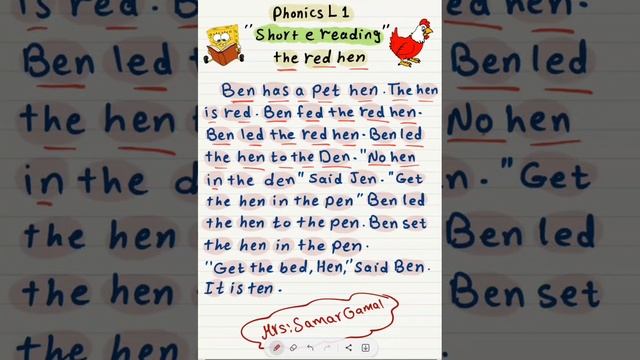 Phonics L 1
"Short e reading"
the red hen
Ben has a pet hen. The hen
is red. Ben fed the red hen.
Ben led the red hen. Ben led
the hen to the Den. "No hen
in the den" said Jen. "Get
the hen in the pen" Ben led
the hen to the pen. Ben set
the hen in the pen.
"Get the bed, Hen," said Ben.
It is ten.
Mrs: Samar Gamal